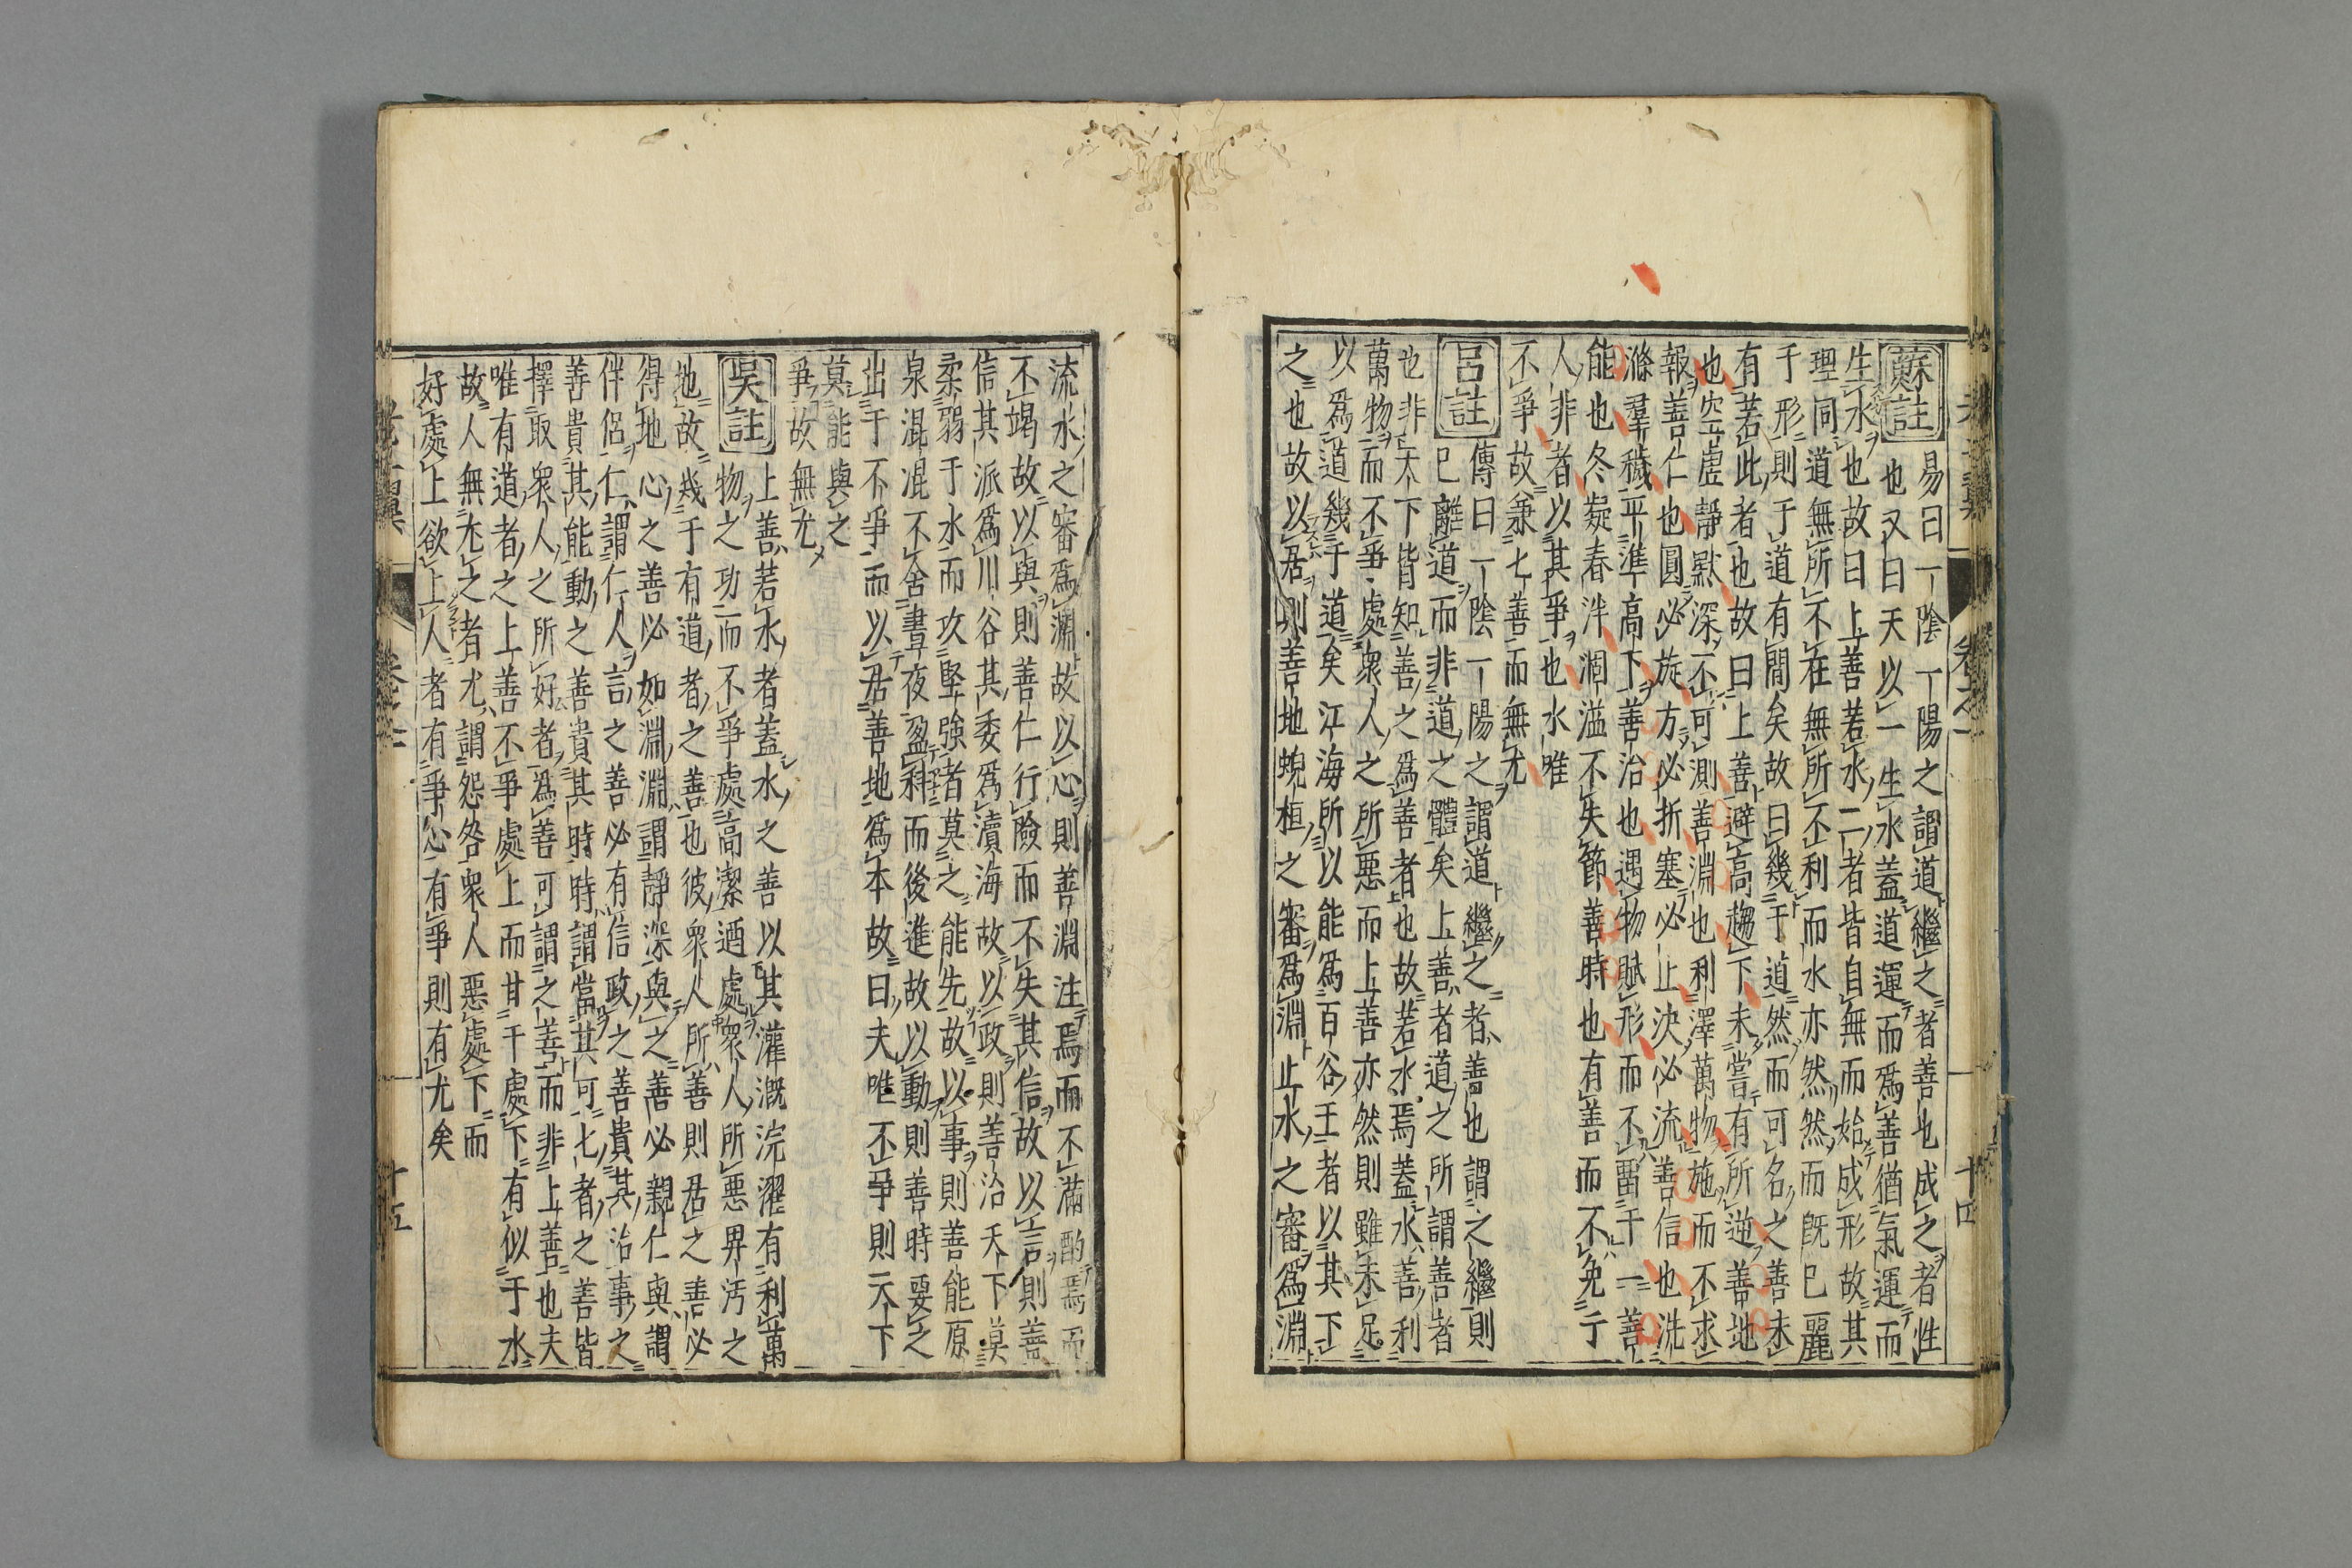 蘇註
易曰一陰一陽之謂道繼之者善也成之者性
也又曰天以一生水蓋道運而爲善猶氣運而
生水也故曰上善若水二者皆自無而始成形故其
理同道無所不在無所不利而水亦然然而既已麗
于形則于道有間矣故曰幾于道然而可名之善未
有若此者也故曰上善避高趨下未嘗有所逆善地
也空虛靜默深不可測善淵也利澤萬物施而不求
報善仁也圓必旋方必折塞必止決必流善信也洗
滌羣穢平準高下善治也遇物賦形而不留于一善
能也冬凝春泮涸溢不失節善時也有善而不免于
人非者以其爭也水唯
不爭故兼七善而無尤
呂註
傳曰一陰一陽之謂道繼之者善也謂之繼則
已離道而非道之體矣上善者道之所謂善者
也非天下皆知善之爲善者也故若水焉蓋水善利
萬物而不爭處衆人之所惡而上善亦然則雖未足
以爲道幾于道矣江海所以能爲百谷王者以其下
之也故以君則善地蜺桓之審爲淵止水之審爲淵
流水之審爲淵故以心則善淵注焉而不滿酌焉而
不竭故以與則善仁行險而不失其信故以言則善
信其派爲川谷其委爲瀆海故以政則善治天下莫
柔弱于水而攻堅強者莫之能先故以事則善能原
泉混混不舍晝夜盈科而後進故以動則善時要之
出于不爭而以居善地爲本故曰夫唯不爭則天下
莫能與之
爭故無尤
吳註
上善若水者蓋水之善以其灌漑浣濯有利萬
物之功而不爭處高潔迺處衆人所惡卑汚之
地故幾于有道者之善也彼衆人所善則居之善必
得地心之善必如淵淵謂靜深與之善必親仁與謂
伴侶仁謂仁人言之善必有信政之善貴其治事之
善貴其能動之善貴其時時謂當其可七者之善皆
擇取衆人之所好者爲善可謂之善而非上善也夫
唯有道者之上善不爭處上而甘于處下有似于水
故人無尤之者尤謂怨咎衆人惡處下而
好處上欲上人者有爭心有爭則有尤矣
老子翼
卷之一
十四
老子翼
卷之一
十五